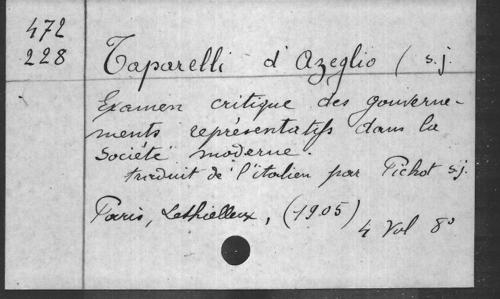 472
228
Taparelli d'Azeglio (s.j.
Examen critique des gouverne-
ments représentatifs dans la
Société moderne.
traduit de l'italien par Pichot s.j.
Paris, Lethielleux, (1905)
4 Vol 8°